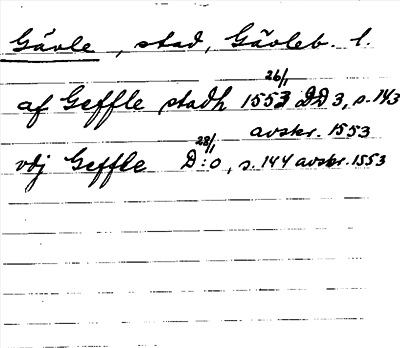 Gävle, stad, Gävleb. l.
af Geffle stadh 1553 26/1 DD 3, s. 143
avskr. 1553
vdj Geffle 28/1 D:o, s. 144 avskr. 1553